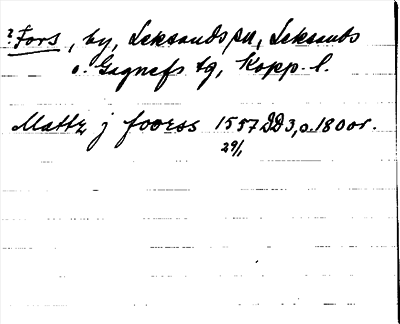 ? Fors, by, Leksands sn, Leksands
o. Gagnefs tg, Kopp. l.
Mattz j foorss 1557 DD3, o. 180 or.
29/1